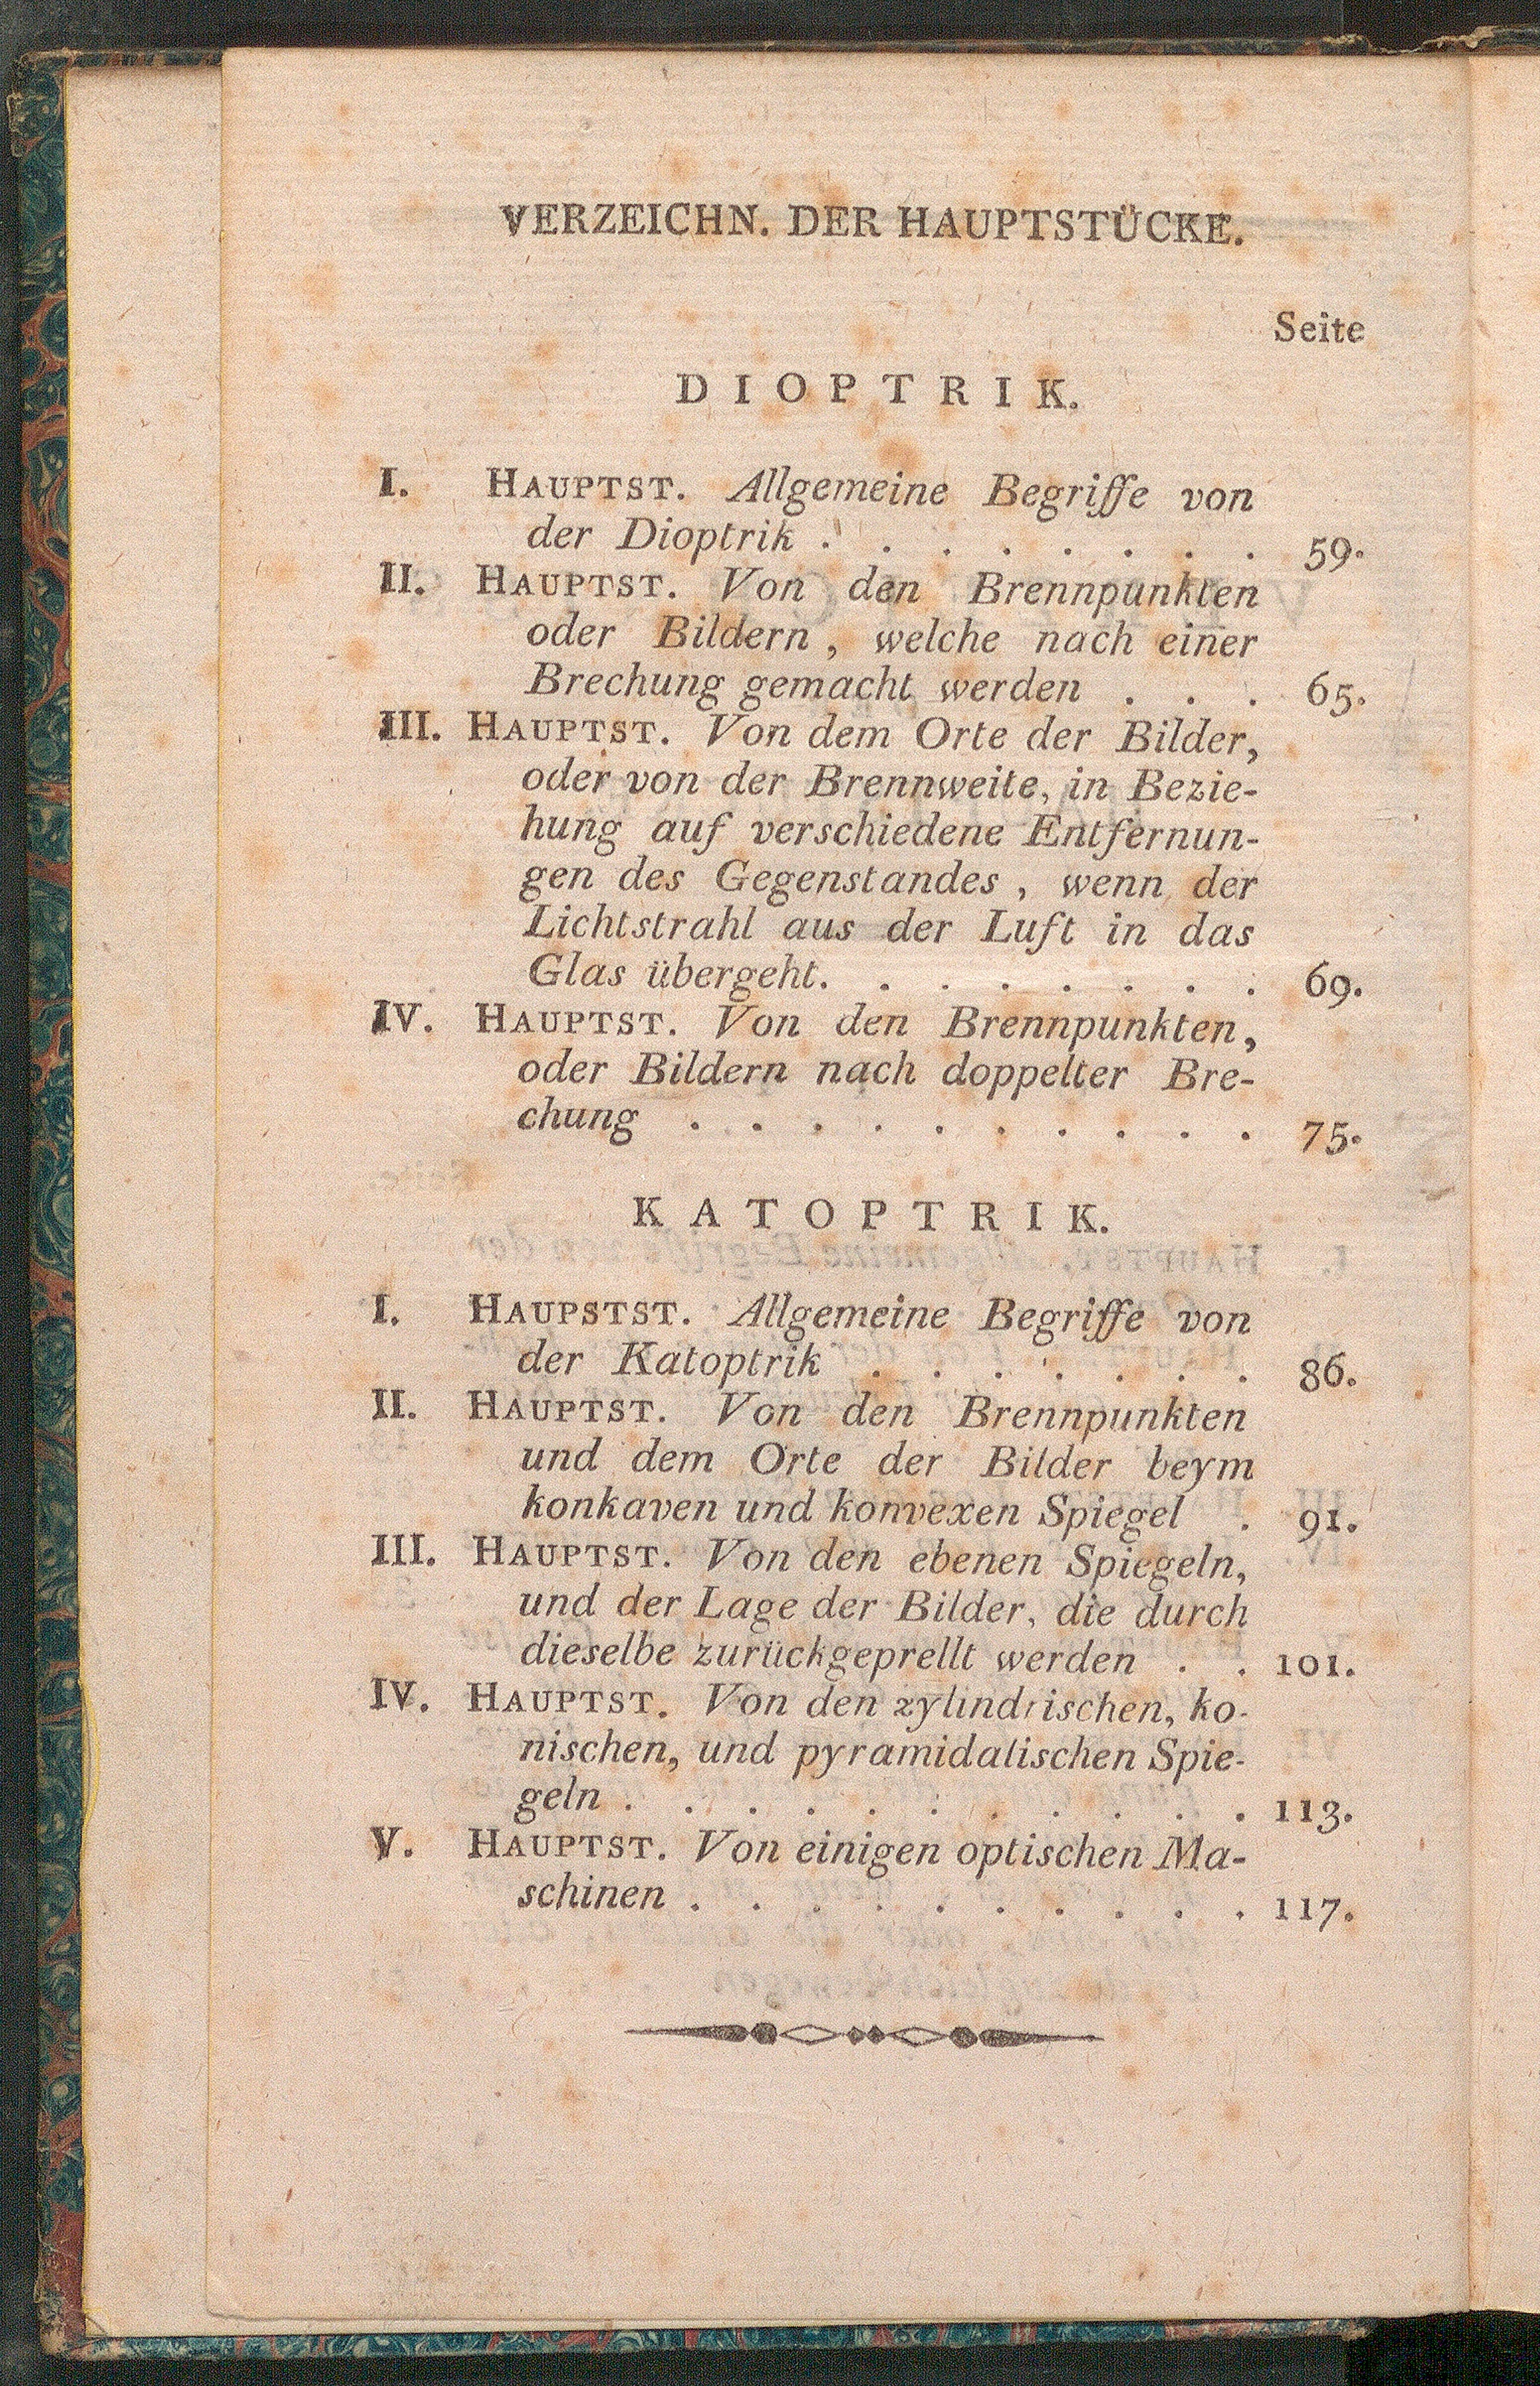 VERZEICHN. DER HAUPTSTÜCKE.
Seite
DIOPTRIK.
I. HAUPTST. Allgemeine Begriffe von
der Dioptrik . . . . . . . . 59.
II. HAUPTST. Von den Brennpunkten
oder Bildern, welche nach einer
Brechung gemacht werden . . . 65.
III. HAUPTST. Von dem Orte der Bilder,
oder von der Brennweite, in Bezie-
hung auf verschiedene Entfernun-
gen des Gegenstandes, wenn der
Lichtstrahl aus der Luft in das
Glas übergeht. . . . . . . . 69.
IV. HAUPTST. Von den Brennpunkten,
oder Bildern nach doppelter Bre-
chung . . . . . . . . . . 75.
KATOPTRIK.
I. HAUPSTST. Allgemeine Begriffe von
der Katoptrik . . . . . . . 86.
II. HAUPTST. Von den Brennpunkten
und dem Orte der Bilder beym
konkaven und konvexen Spiegel . 91.
III. HAUPTST. Von den ebenen Spiegeln,
und der Lage der Bilder, die durch
dieselbe zurückgeprellt werden . . 101.
IV. HAUPTST. Von den zylindrischen, ko-
nischen, und pyramidalischen Spie-
geln . . . . . . . . . . . 113.
V. HAUPTST. Von einigen optischen Ma-
schinen . . . . . . . . . . 117.